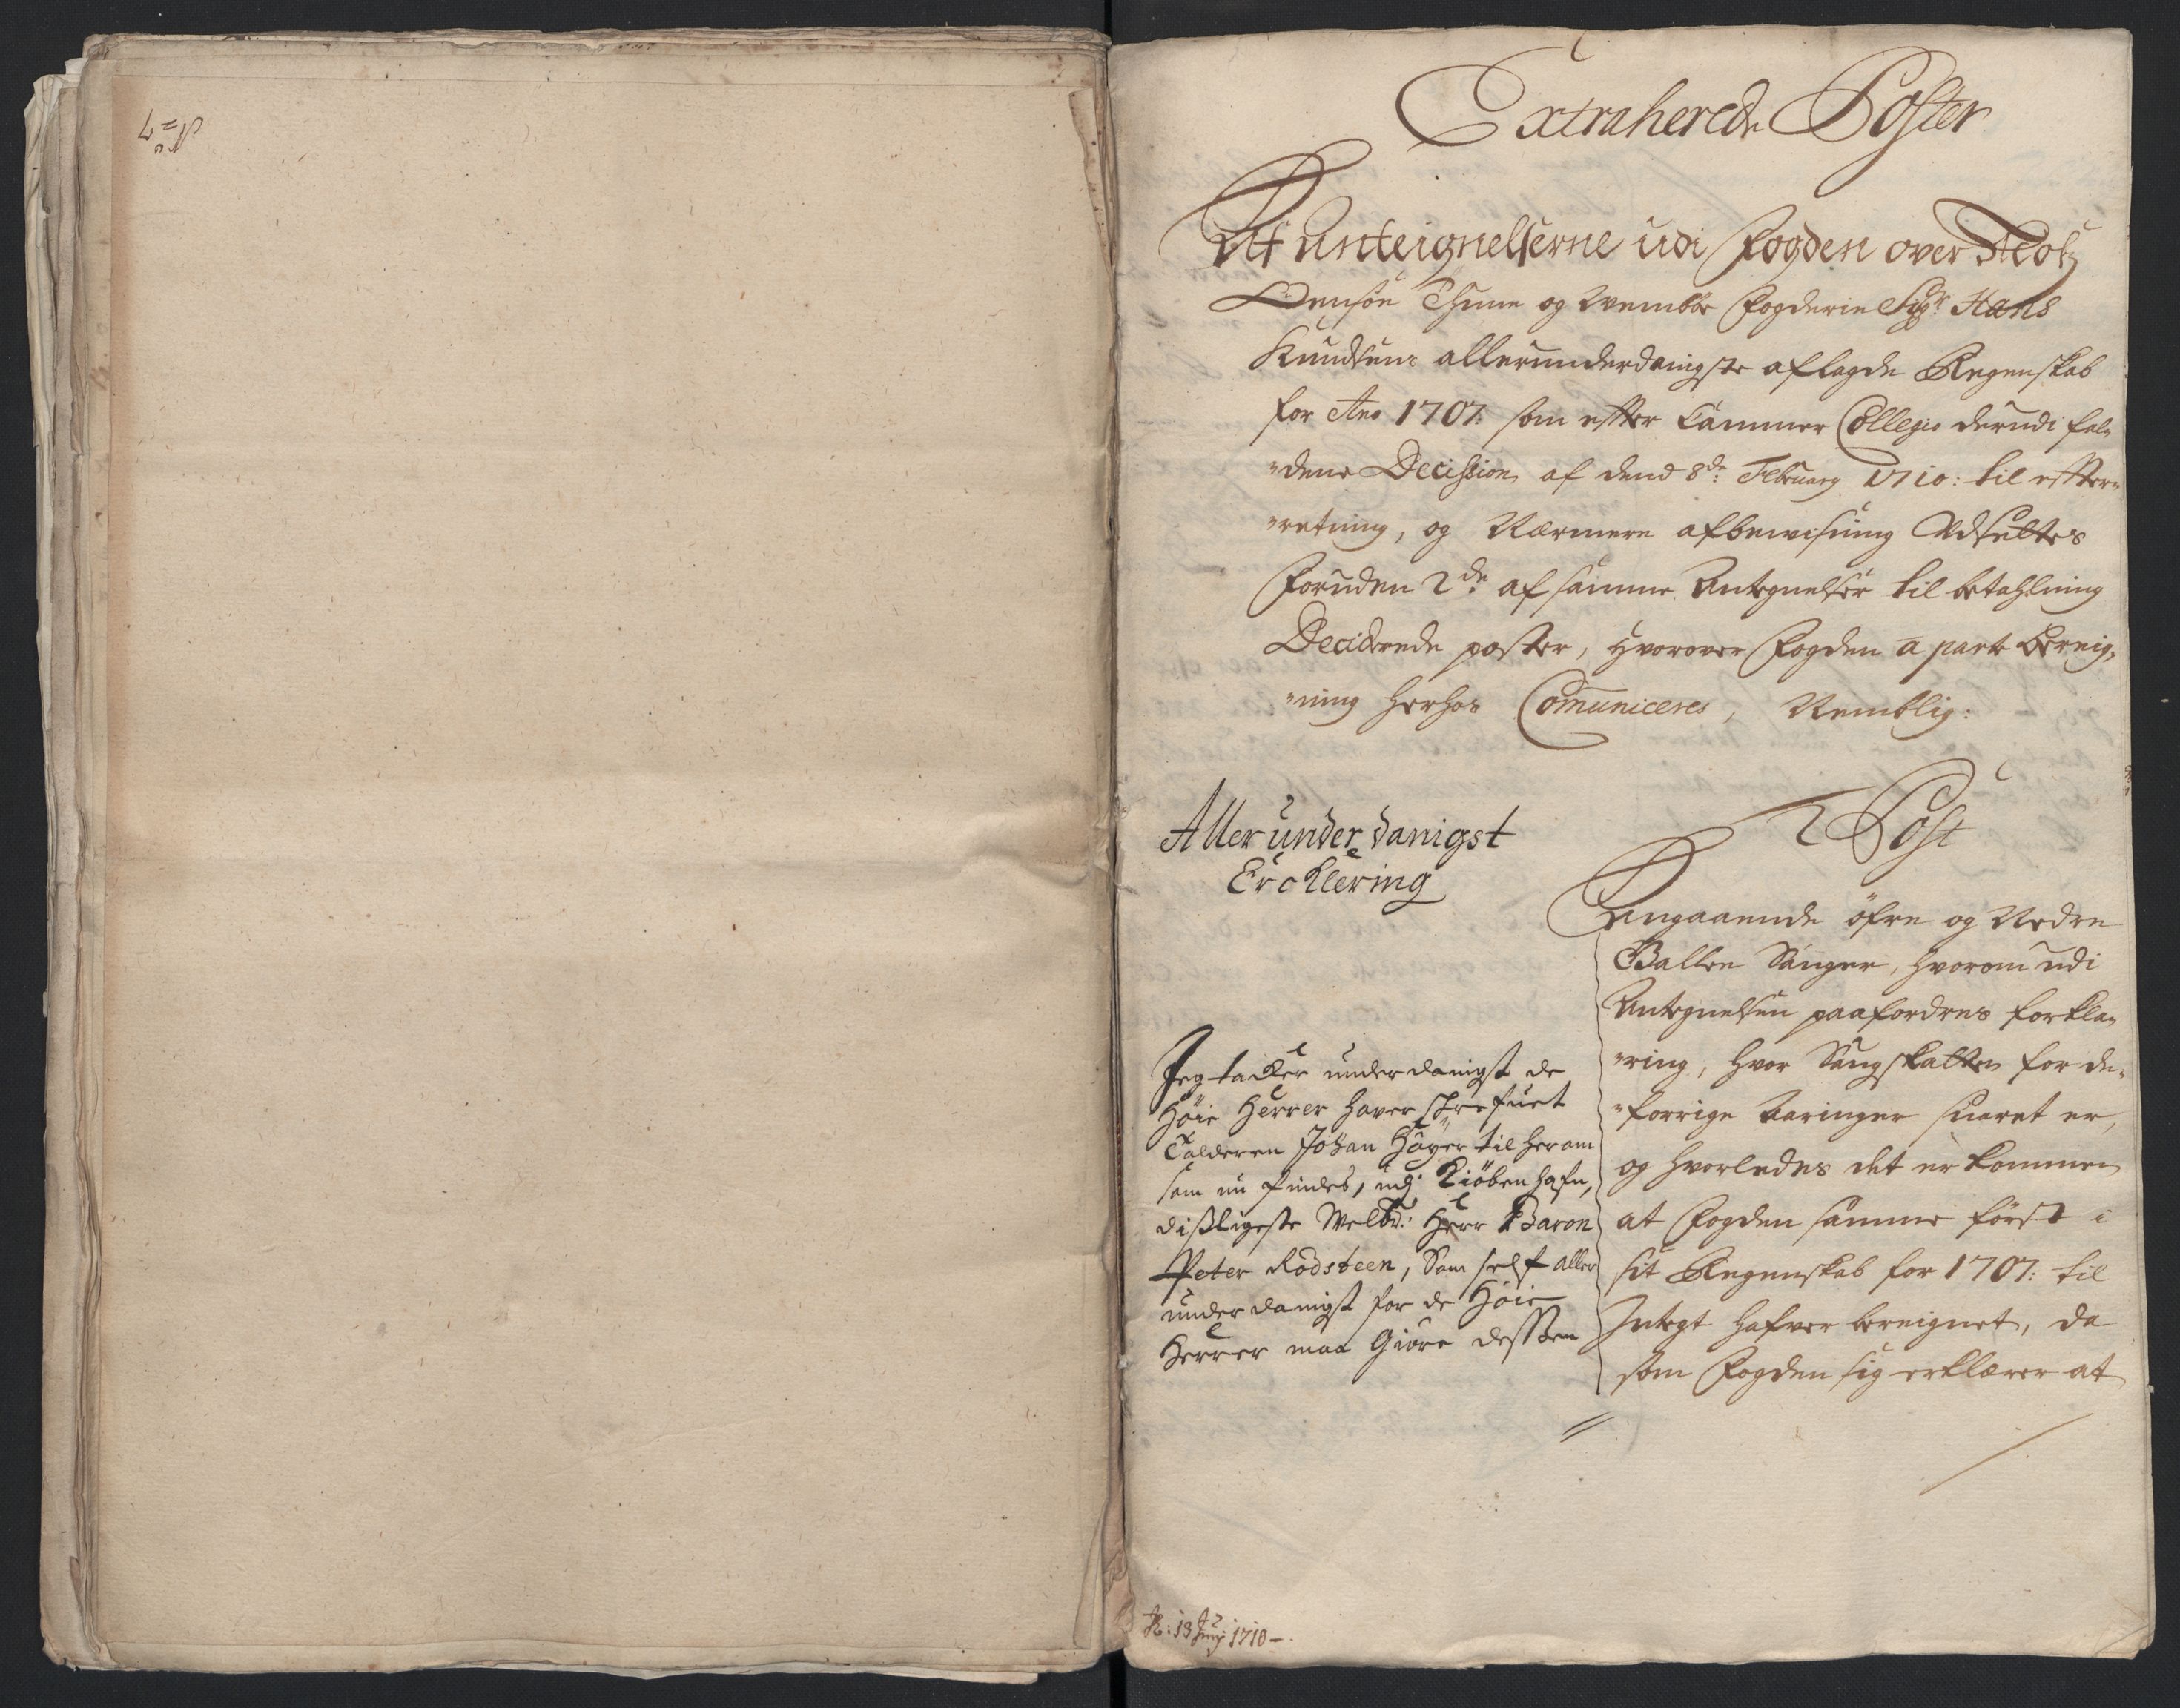 No 7
Extraherede Poster
Af Anteignelserne udi Fogden over
Odensöe Thune og Wembös Fogderie Sigr Hans
Knudsens allerunderdanigste aflagde Regenskab
for Ano 1707: som efter Cammer Collegio derudi fal„
„dene Decission af dend 8de: Februarij 1710: til effter„
„retning, og Nærmere afbewisning Udsættes
Foruden 2de: af samme Antegnelser til betahlning
Deciderede poster, hvorover Fogden a parte bereig„
„ning herhos Comuniceres, Nemblig:
2 Post
Angaaende öfre og Nedre
Ballen Sauger, hvorom udi
Antegnelsen paafordres forkla„
„ring, hvor Saugskatten for de„
„forrige Aaringer svaret er,
og hvorledes det er kommen
at Fogden samme först i
sit Regenskab for 1707: til
Indtegt hafver bereignet, da
som Fogden sig erklærer at
Allerunderdanigst
Ercklering
Jeg tacker underdanigst de
Höie Herrer haver skrefuet
Calderen Johan Höyer til herom
som nu findes, udj Kiöbenhafn,
disligeste Welbr: Herr Baron
Peter Rodsteen, Som self aller
underdanigst for de Höie
Herrer maa Giöre dessen
R: 13 Junij 1710 –